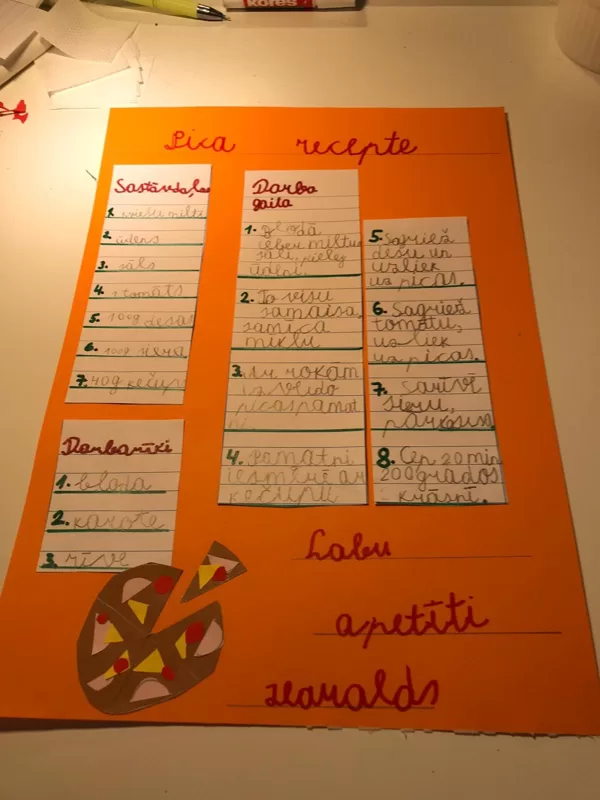 kores
Pica recepte
Sastāvdaļas
1. kviešu milti
2. ūdens
3. sāls
4. tomāts
5. 100g desas
6. 100g siera
7. 40g kečup
Darbarīki
1. bļoda
2. karote
3. rīve
Darba
gaita
1. Bļodā
ieber miltus
sāli, pielej
ūdni.
2. To visu
samaisa,
samīca
mīklu
3. Ar rokām
izveido
picaspamat
ni.
4. Pamatni
iesmērē ar
kečupu
5. Sagriež
desu un
uzliek
uz picas.
6. Sagriež
tomātu,
uzliek
uz picas.
7. Sarīvē
sieru,
pārkaisa
8. Cep 20 min
200 grādos
krāsnī.
Labu
apetīti
Haralds